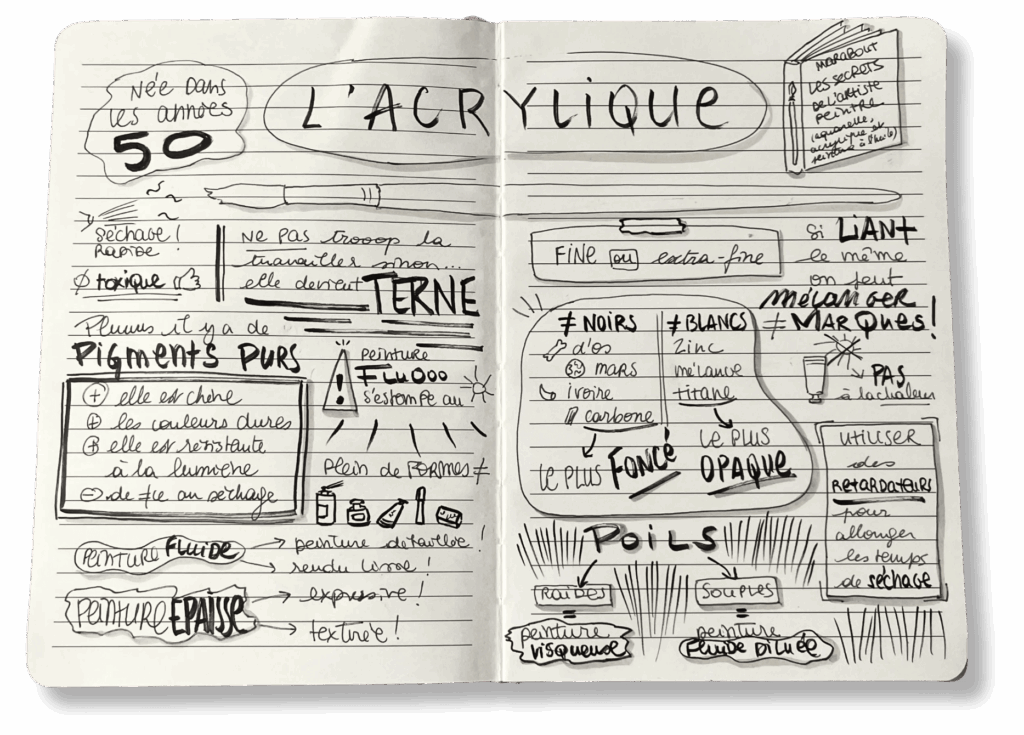 Née dans
les années
50
L'ACRYLIQUE
MARABOUT
LES SECRETS
DE L'ARTISTE
PEINTRE
(aquarelle,
acrylique et
peinture à l'huile)
séchage !
RAPIDE
∅ toxique
Ne pas trooop la
travailler sinon...
elle devient TERNE
Pluuus il y a de
PIGMENTS PURS
⊕ elle est chère
⊕ les couleurs dures
⊕ elle est résistante
à la lumière
⊖ de ≠ce au séchage
!
peinture
FLUOOO
s'estompe au
Plein de FORMES ≠
PEINTURE FLUIDE
→ peinture détaillée !
→ rendu lisse !
PEINTURE EPAISSE
→ expressive !
→ texturée !
FINE ou extra-fine
Si LIANT
le même
on peut
MÉLANGER
≠ MARQUES !
≠ NOIRS
d'os
MARS
ivoire
carbone
LE PLUS FONCÉ
≠ BLANCS
Zinc
mélange
titane
LE PLUS
OPAQUE
PAS
à la chaleur
UTILISER
des
RETARDATEURS
pour
allonger
les temps
de séchage
POILS
RAIDES
=
peinture
visqueuse
SOUPLES
=
peinture
FLUIDE DILUÉE